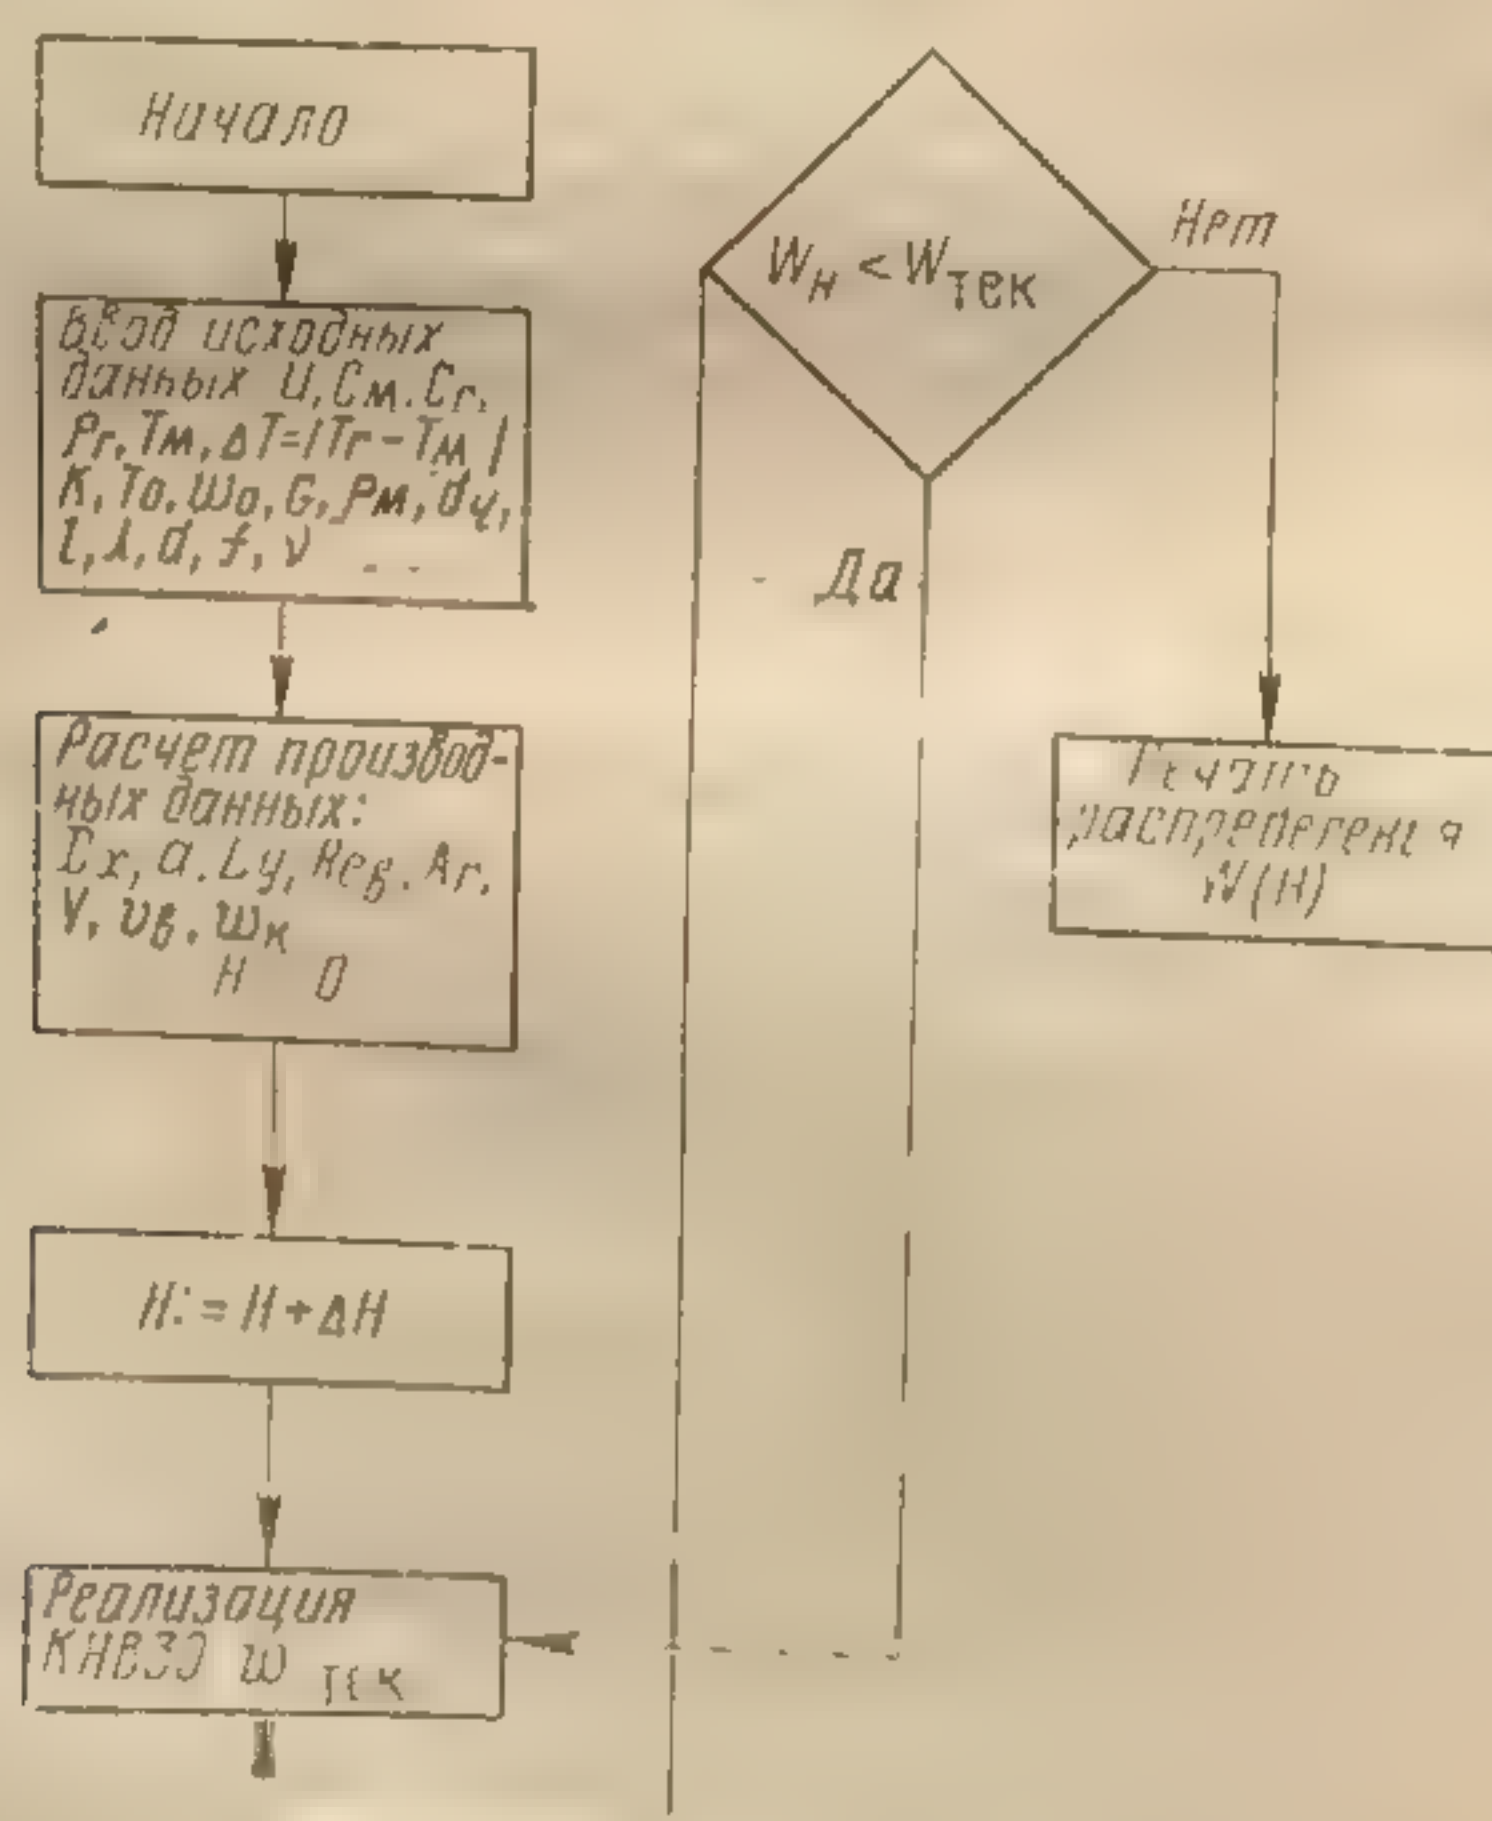 Начало
Ввод исходных
данных U, См. Сг,
Рг, Тм, ΔT=|Тг-Тм|
К, То, Шо, G, ρм, dч,
l, λ, d, f, ν
Расчет производ-
ных данных:
а. Lу, Reв. Аr,
V, υв. ωк
H 0
H:=H+ΔH
Реализация
КНВЗЭ ω тек
Wн < Wтек
Нет
Да
Печать
распределения
W(H)